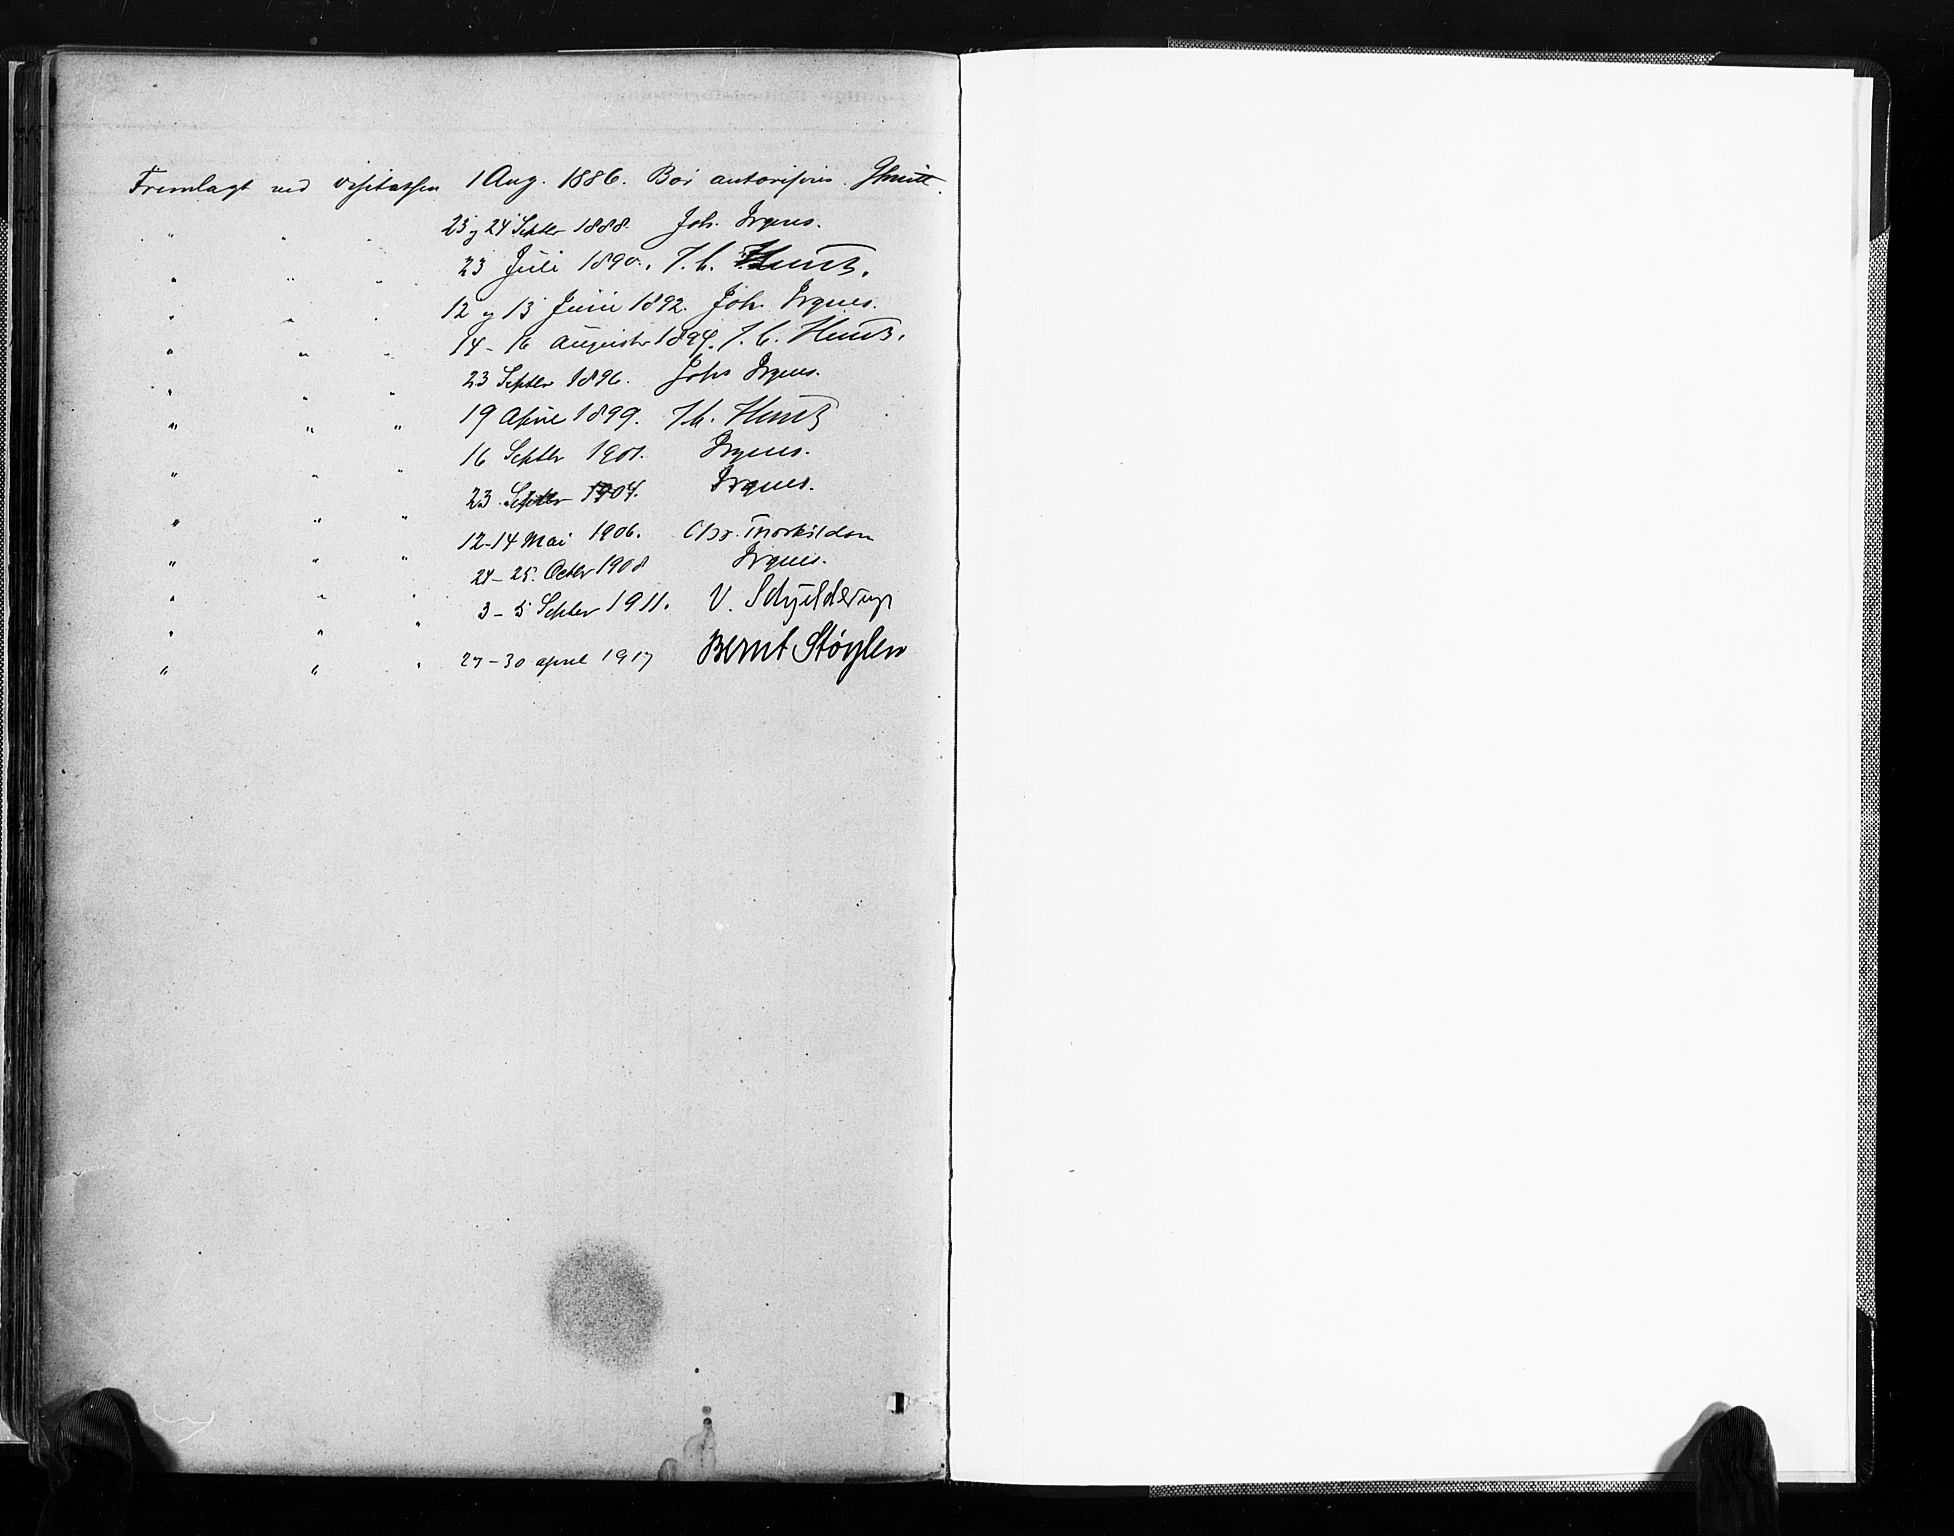 Fremlagt ved visitatsen 1 Aug. 1886. Bør autoriseres.
" " " 23 og 24 Septbr 1888. Joh. Irgens.
" " " 23 Juli 1890. J. C. Heuch.
" " " 12 og 13 Juni 1892. Joh. Irgens.
" " " 14-16 August 1894. J. C. Heuch.
" " " 23 Septbr 1896. Johs Irgens.
" " " 19 April 1899. J. C. Heuch
" " " 16 Septbr 1901. Irgens.
" " " 23 Septbr 1904. Irgens.
" " " 12-14 Mai 1906. Chr. Thorkildsen
" " " 24-25. Octbr 1908 Irgens.
" " " 3-5 Septbr 1911. V. Schjelderup
" " " 27-30 april 1917 Bernt Støylen